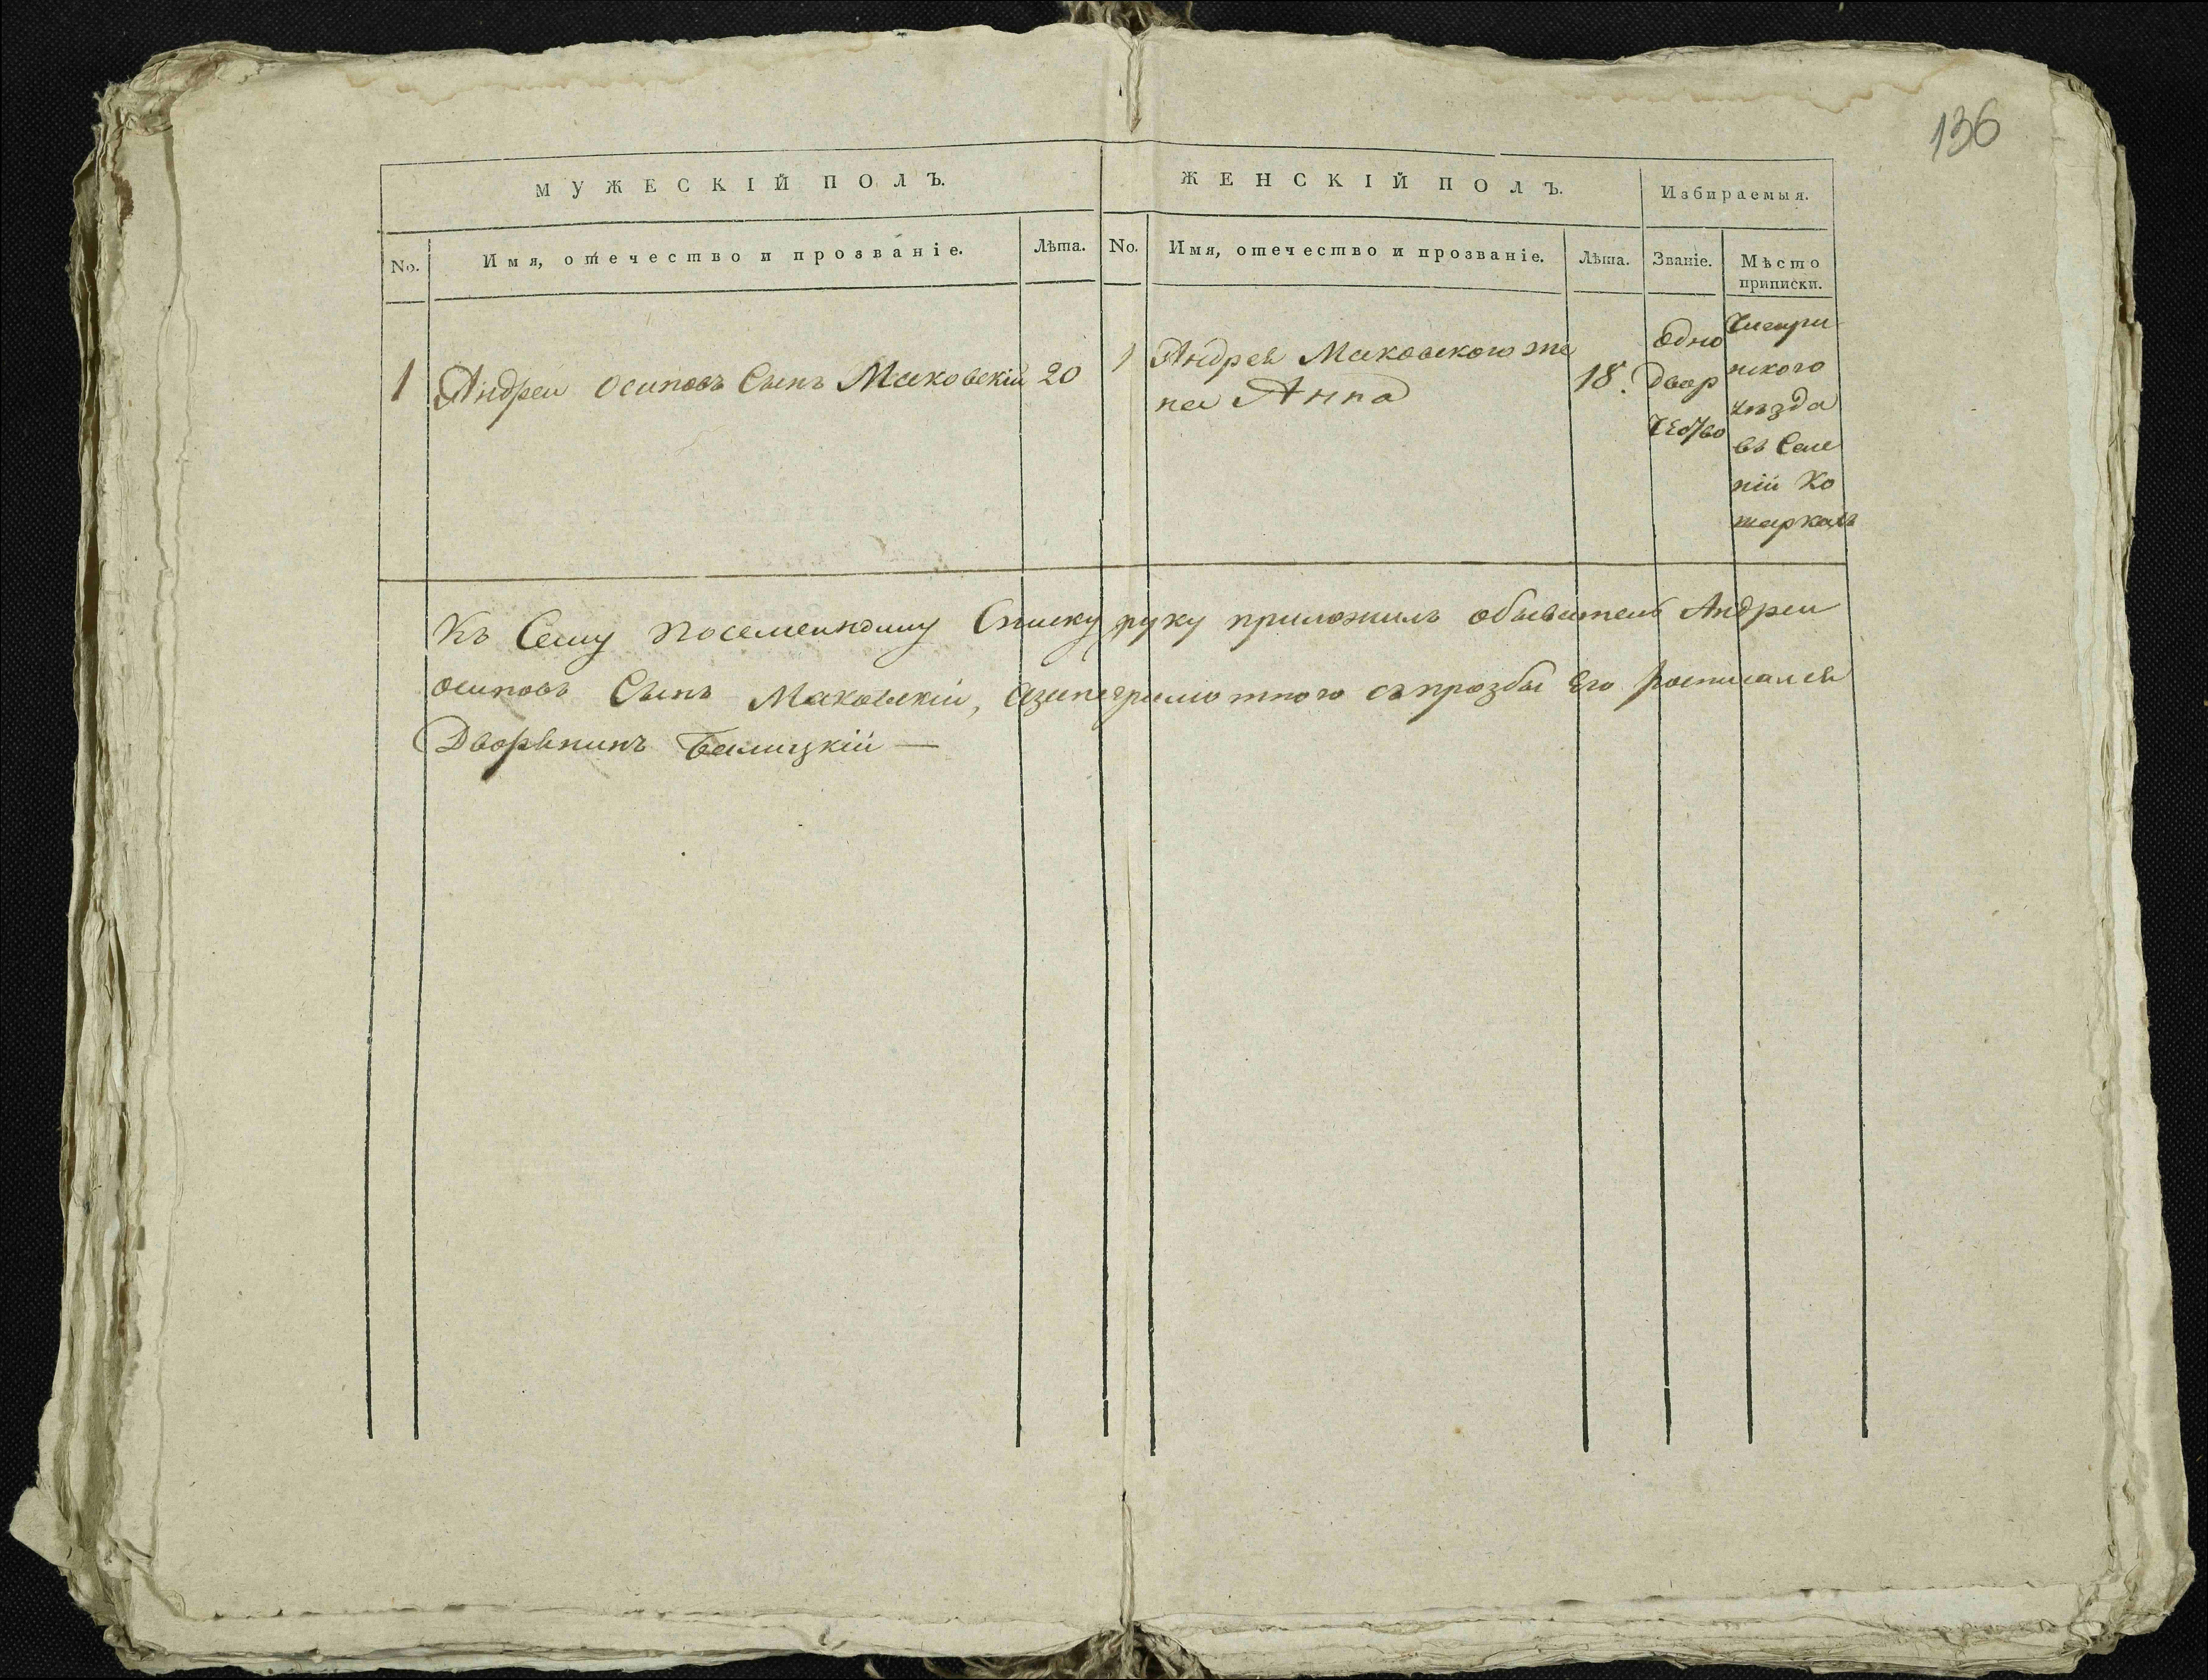 136
МУЖЕСКІЙ ПОЛЪ.
ЖЕНСКІЙ ПОЛЪ.
Избираемыя.
No.
Имя, отечество и прозваніе.
Лѣта.
No.
Имя, отечество и прозваніе.
Лѣта.
Званіе.
Мѣсто
приписки.
1
Андреи Осиповъ Сынъ Маковскій
20
1
Андрея Маковского же
на Анна
18.
Одно
Двор
чество
Чигри
нского
уѣзда
въ Селе
ніи Ко
таркахъ
Къ Сему посемеиному Списку руку приложилъ обыватель Андреи
Осиповъ Сынъ Маковскіи, азанеграмотного съпрозбы Его росписался
Дворянинъ Балицкіи —